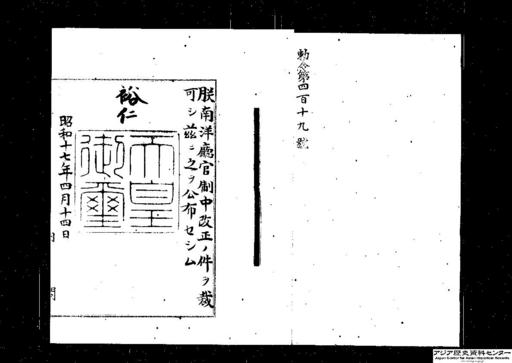 勅令第四百十九號
朕南洋廳官制中改正ノ件ヲ裁
可シ茲ニ之ヲ公布セシム
裕仁
天皇
御璽
昭和十七年四月十四日
内閣
アジア歴史資料センター
Japan Center for Asian Historical Records